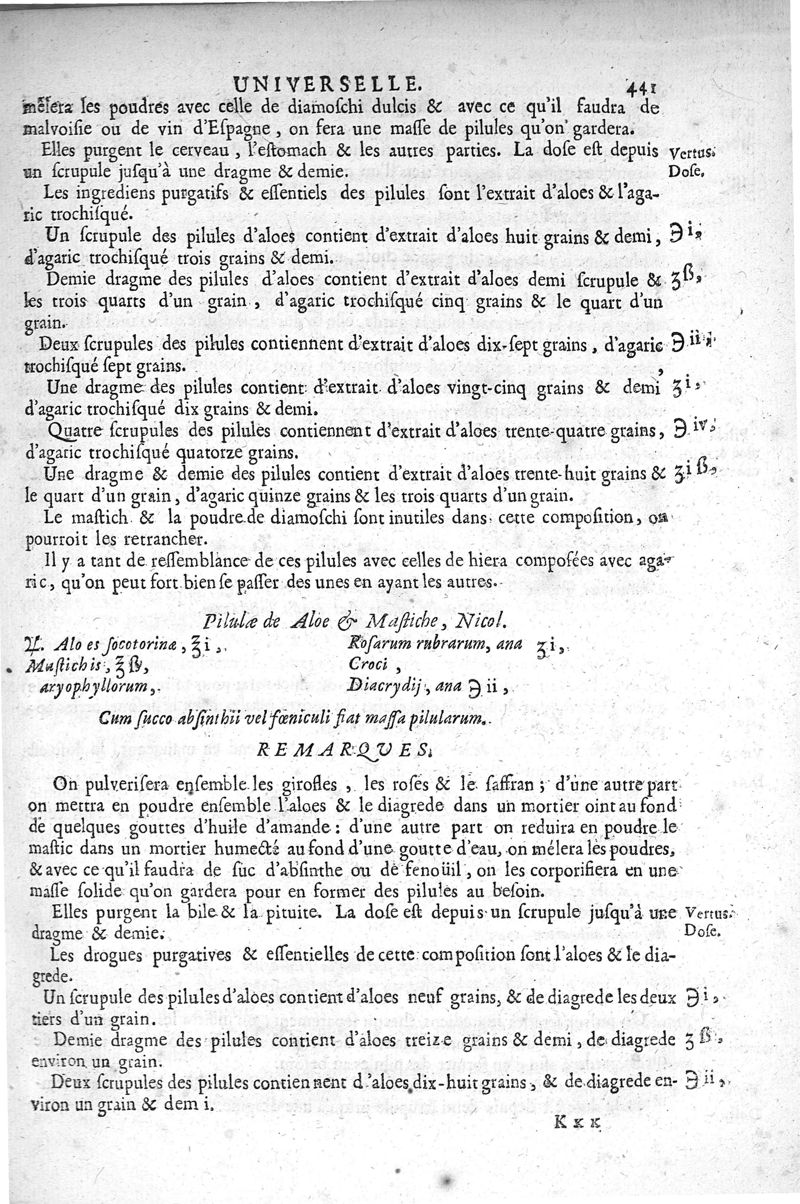 UNIVERSELLE. 441
mêlera les poudres avec celle de diamoſchi dulcis & avec ce qu'il faudra de
malvoiſie ou de vin d'Eſpagne, on fera une maſſe de pilules qu'on gardera.
Elles purgent le cerveau, l'eſtomach & les autres parties. La doſe eſt depuis Vertus.
un ſcrupule juſqu'à une dragme & demie. Doſe.
Les ingrediens purgatifs & eſſentiels des pilules ſont l'extrait d'aloes & l'aga-
ric trochiſqué.
Un ſcrupule des pilules d'aloes contient d'extrait d'aloes huit grains & demi, ℈ i,
d'agaric trochiſqué trois grains & demi.
Demie dragme des pilules d'aloes contient d'extrait d'aloes demi ſcrupule & ʒ ß,
les trois quarts d'un grain, d'agaric trochiſqué cinq grains & le quart d'un
grain.
Deux ſcrupules des pilules contiennent d'extrait d'aloes dix-ſept grains, d'agaric ℈ ii,
trochiſqué ſept grains.
Une dragme des pilules contient d'extrait d'aloes vingt-cinq grains & demi, ʒ i,
d'agaric trochiſqué dix grains & demi.
Quatre ſcrupules des pilules contiennent d'extrait d'aloes trente-quatre grains, ℈ iv,
d'agaric trochiſqué quatorze grains.
Une dragme & demie des pilules contient d'extrait d'aloes trente-huit grains & ʒi ß,
le quart d'un grain, d'agaric quinze grains & les trois quarts d'un grain.
Le maſtich & la poudre de diamoſchi ſont inutiles dans cette compoſition, on
pourroit les retrancher.
Il y a tant de reſſemblance de ces pilules avec celles de hiera compoſées avec aga-
ric, qu'on peut fort bien ſe paſſer des unes en ayant les autres.
Pilulæ de Aloe & Maſtiche, Nicol.
♃. Aloes ſocotorinæ, ℥ i, Roſarum rubrarum, ana ʒ i,
Maſtichis, ℥ ß, Croci,
aryophyllorum, Diacrydij, ana ℈ ii,
Cum ſucco abſinthii vel fœniculi fiat maſſa pilularum.
REMARQUES.
On pulveriſera enſemble les girofles, les roſes & le ſaffran; d'une autre part
on mettra en poudre enſemble l'aloes & le diagrede dans un mortier oint au fond
de quelques gouttes d'huile d'amande: d'une autre part on reduira en poudre le
maſtic dans un mortier humecté au fond d'une goutte d'eau, on mêlera les poudres,
& avec ce qu'il faudra de ſuc d'abſinthe ou de fenoüil, on les corporifiera en une
maſſe ſolide qu'on gardera pour en former des pilules au beſoin.
Elles purgent la bile & la pituite. La doſe eſt depuis un ſcrupule juſqu'à une Vertus.
dragme & demie. Doſe.
Les drogues purgatives & eſſentielles de cette compoſition ſont l'aloes & le dia-
grede.
Un ſcrupule des pilules d'aloes contient d'aloes neuf grains, & de diagrede les deux ℈ i,
tiers d'un grain.
Demie dragme des pilules contient d'aloes treize grains & demi, de diagrede ʒ ß,
environ un grain.
Deux ſcrupules des pilules contiennent d'aloes dix-huit grains, & de diagrede en- ℈ ii,
viron un grain & demi.
K x x